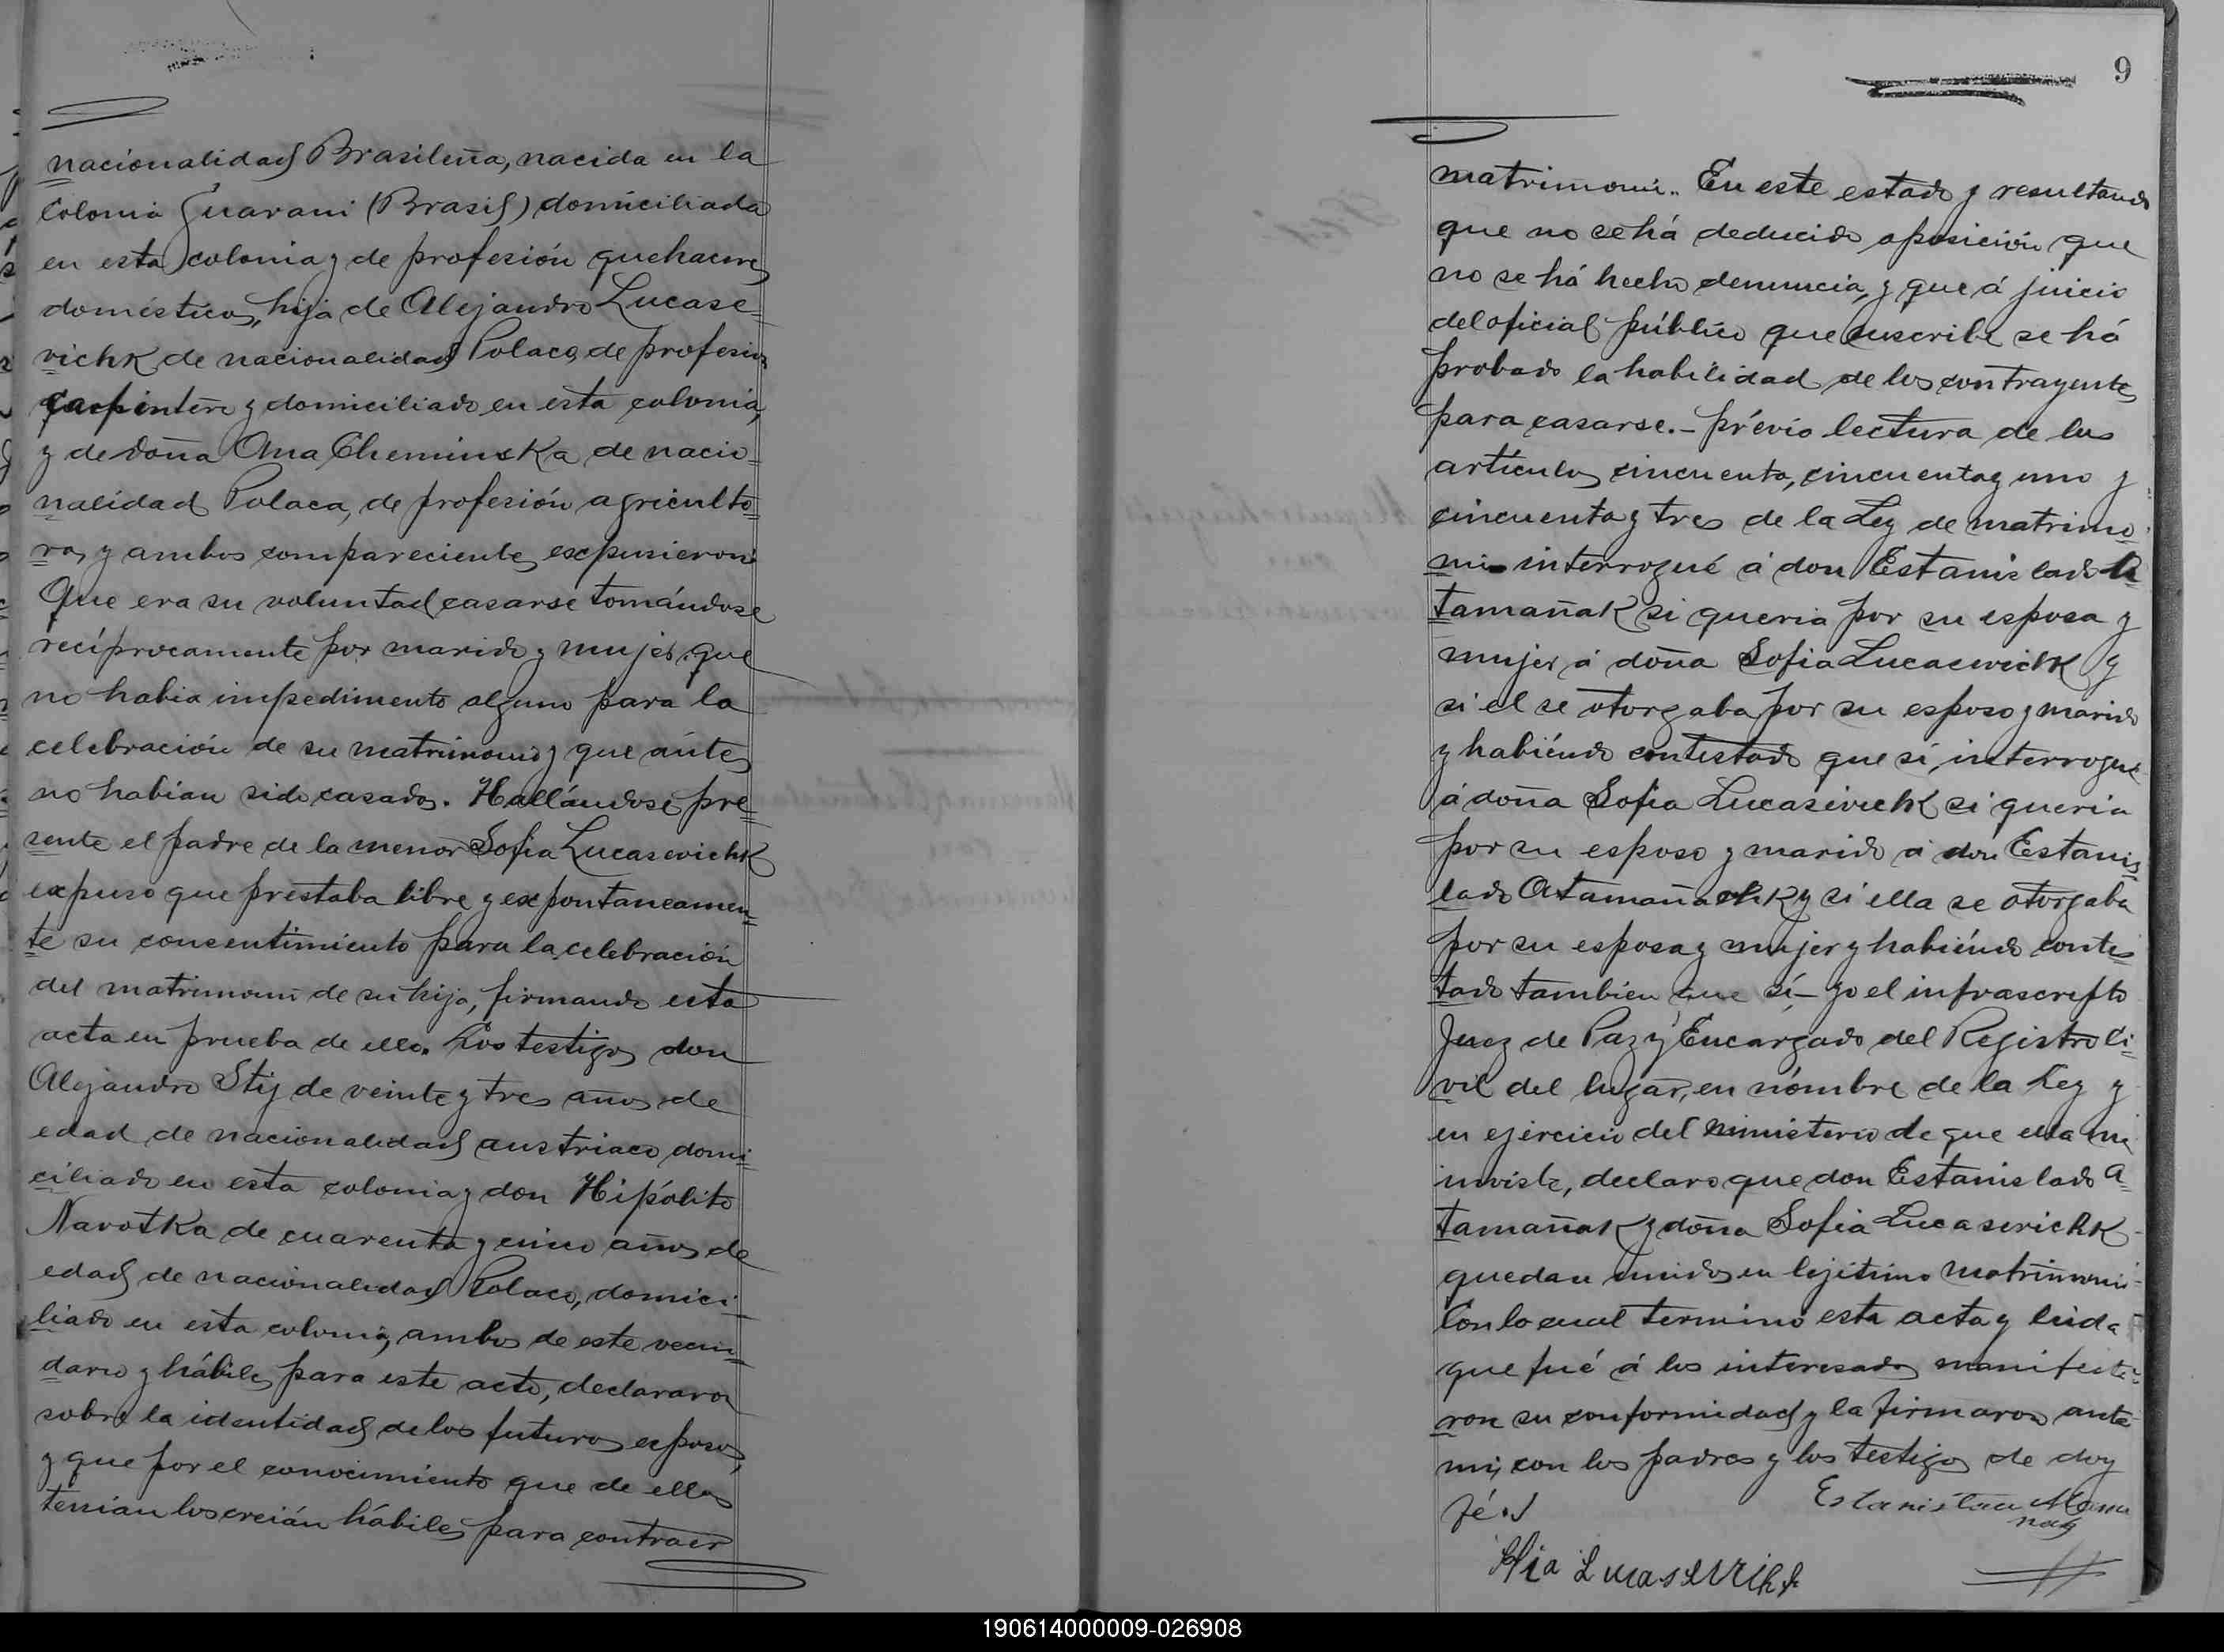 nacionalidad Brasileña, nacida en la
Colonia Guarani (Brasil) domiciliada
en esta colonia y de profesión quehaceres
domésticos, hija de Alejandro Lucase=
vichk de nacionalidad Polaco, de profesion
carpintero y domiciliado en esta colonia,
y de doña Ana Cheminska, de nacio=
nalidad Polaca, de profesión agriculto=
ra, y ambos comparecientes expusieron:
Que era su voluntad casarse tomándose
recíprocamente por marido y mujer, que
no habia impedimento alguno para la
celebración de su matrimonio y que ántes
no habían sido casados. Hallándose pre=
sente el padre de la menor Sofia Lucasevichk
expuso que prestaba libre y expontaneamen=
te su consentimiento para la celebración
del matrimonio de su hija, firmando esta
acta en prueba de ello. Los testigos don
Alejandro Stij de veinte y tres años de
edad de nacionalidad austriaco domi=
ciliado en esta colonia y don Hipólito
Navotka de cuarenta y cinco años de
edad de nacionalidad Polaco, domici=
liado en esta colonia, ambos de este vecin=
dario y hábiles para este acto, declararon
sobre la identidad de los futuros esposos,
y que por el conocimiento que de ellos
tenian los creián hábiles para contraer
9
matrimonio. En este estado y resultando
que no se há deducido oposición que
no se há hecho denuncia, y que á juicio
del oficial público que suscribe se há
probado la habilidad de los contrayentes
para casarse.- prévio lectura de los
artículos cincuenta, cincuenta y uno y
cincuenta y tres de la Ley de matrimo=
nio interrogué á don Estanislado A=
tamañak si queria por su esposa y
mujer á doña Sofia Lucasevichk y
si el se otorgaba por su esposo y marido
y habiéndo contestado que sí, interrogué
á doña Sofia Lucasevichk si queria
por su esposo y marido á don Estanis=
lado Atamañachk y si ella se otorgaba
por su esposa y mujer y habiéndo contes=
tado tambien que sí- yo el infrascripto
Juez de Paz y Encargado del Registro Ci=
vil del lugar, en nómbre de la Ley y
en ejercicio del ministerio de que ella me
inviste, declaro que don Estanislado A=
tamañak y doña Sofia Lucasevichk
quedan unidos en lejitimo matrimonio
Con lo cual termino esta acta y leida
que fué á los interesados manifesta=
ron su conformidad y la firmaron ante
mi, con los padres y los testigos de doy
fé.
Lucasevichk
190614000009-026908